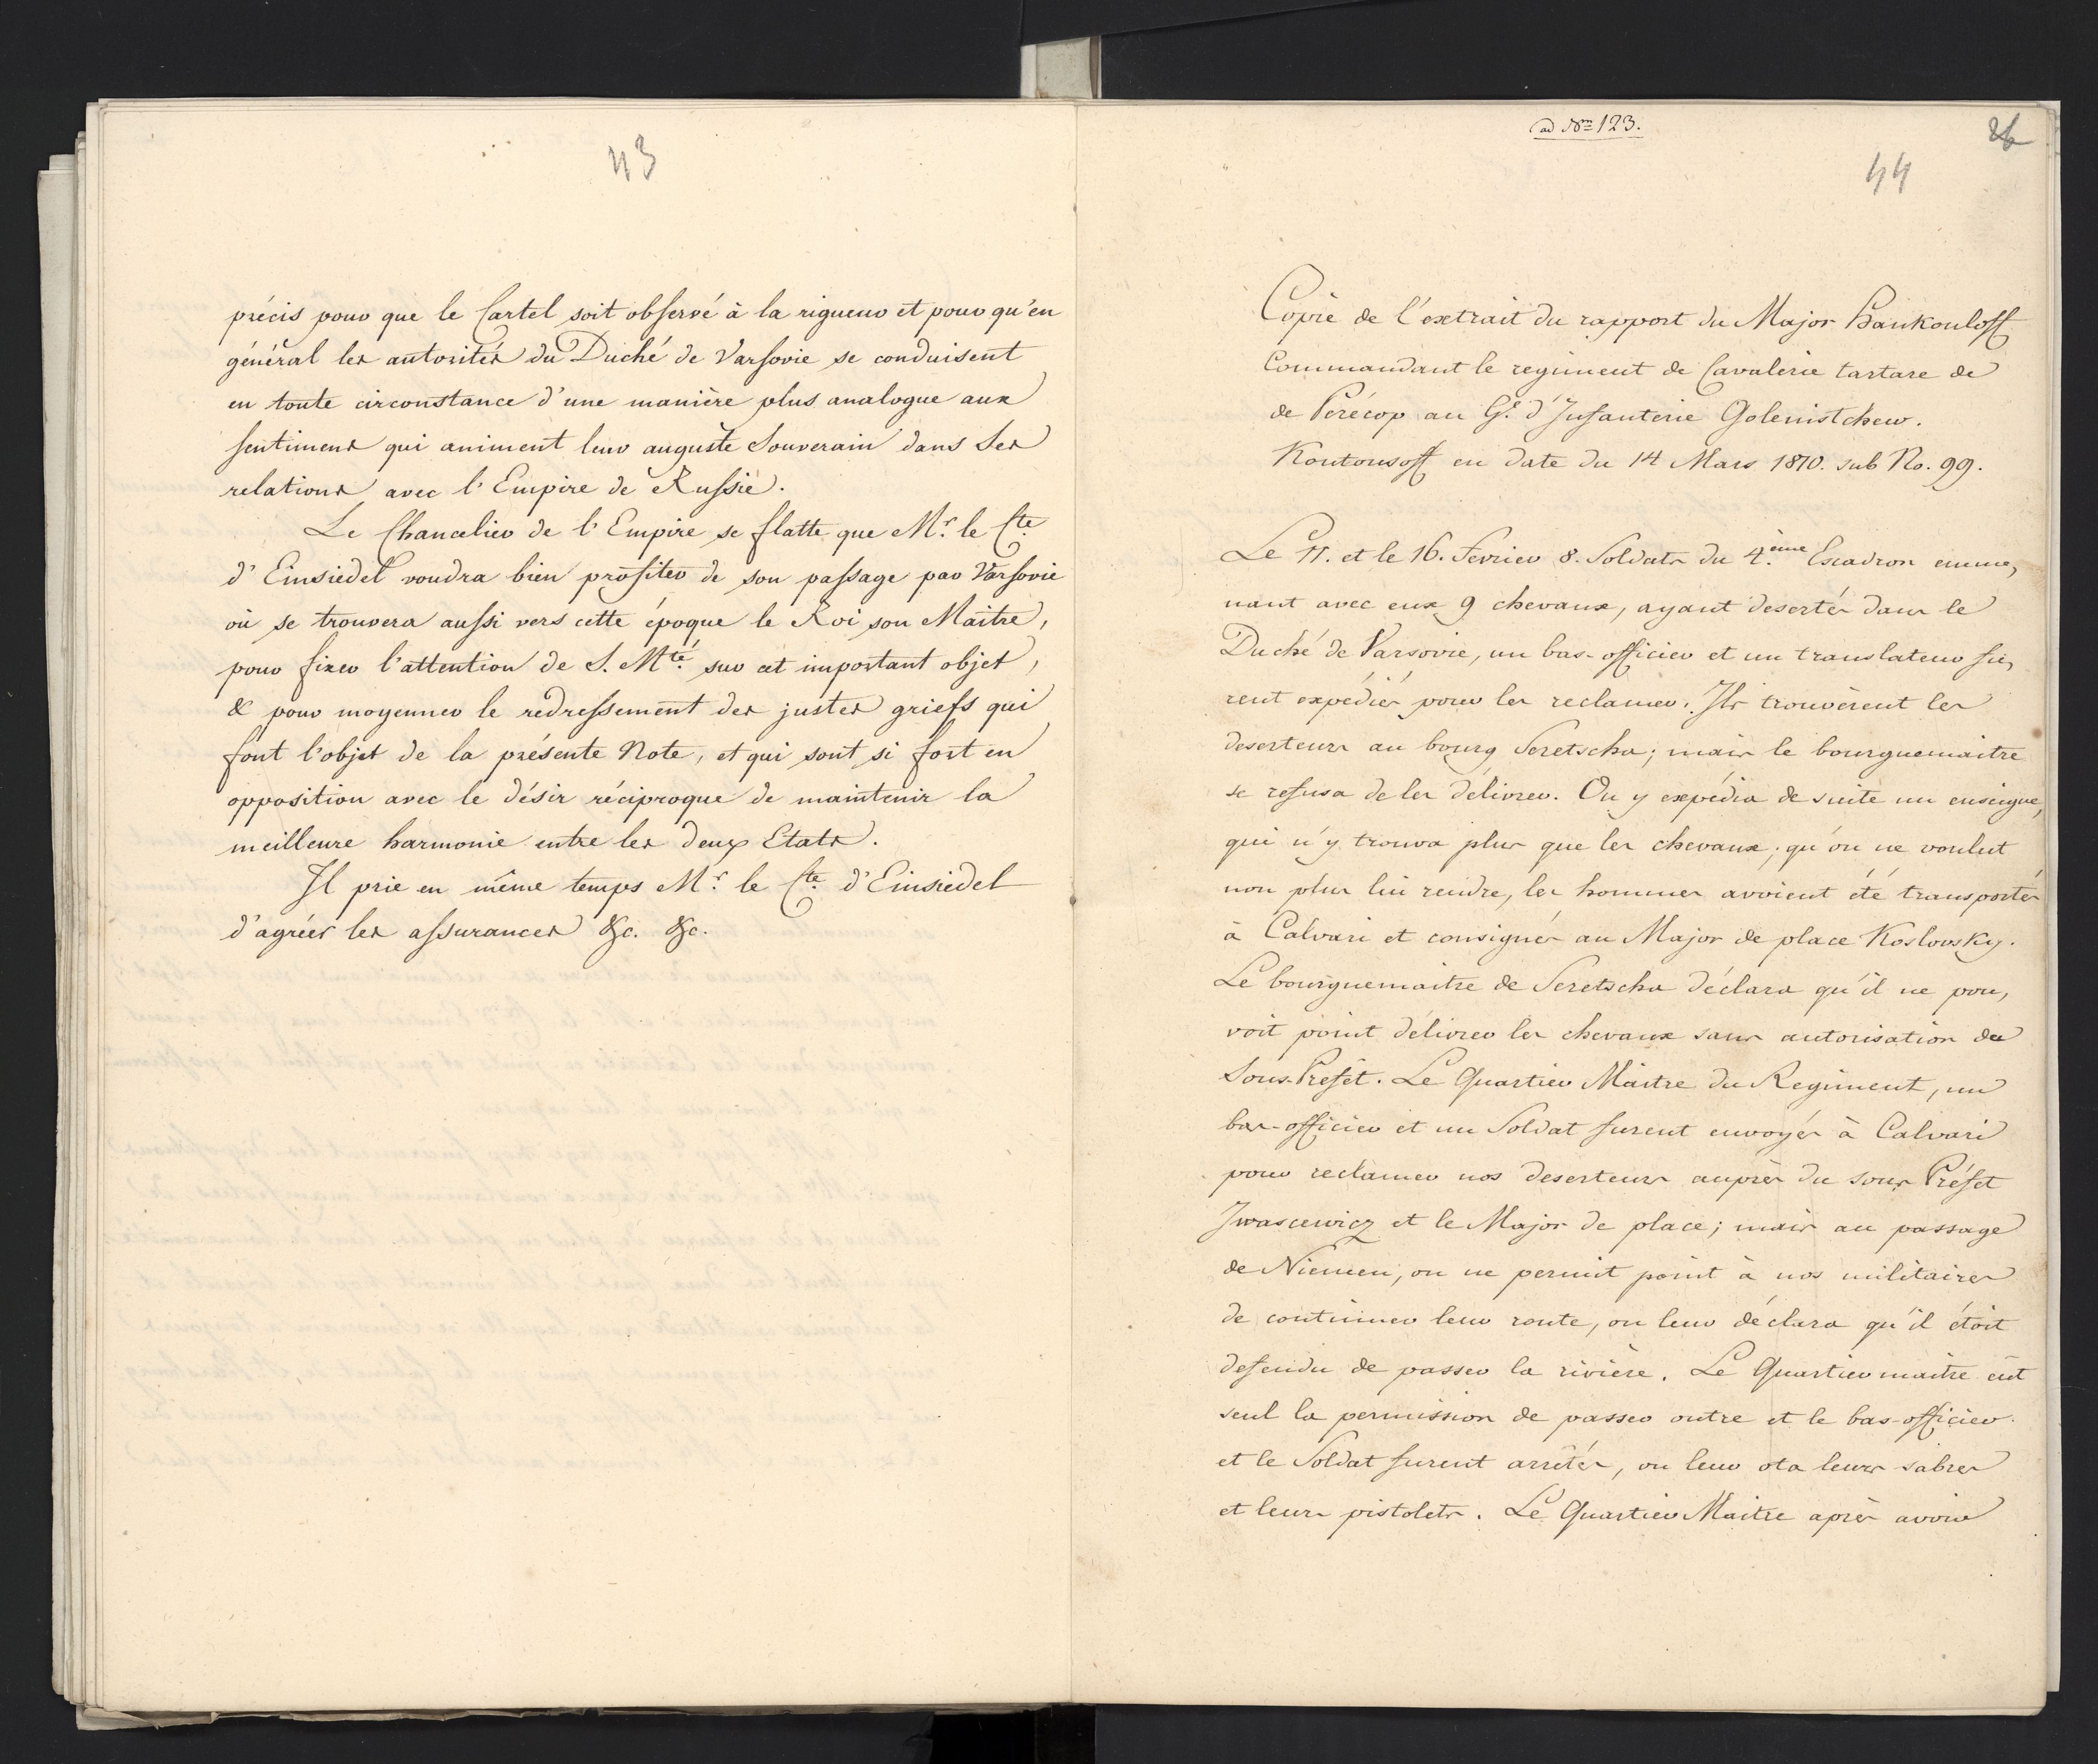 43
précis pour que le Cartel soit observé à la rigueur et pour qu'en
général les autorités du Duché de Varsovie se conduisent
en toute circonstance d'une manière plus analogue aux
sentimens qui animent leur auguste Souverain dans Ses
relations avec l'Empire de Russie.
Le Chancelier de l'Empire se flatte que Mr. le Cte
d'Einsiedel voudra bien profiter de son passage par Varsovie
où se trouvera aussi vers cette époque le Roi son Maitre,
pour fixer l'attention de S. Mté sur cet important objet,
& pour moyenner le redressement des justes griefs qui
font l'objet de la présente Note, et qui sont si fort en
opposition avec le désir réciproque de maintenir la
meilleure harmonie entre les deux Etats.
Il prie en même temps Mr. le Cte d'Einsiedel
d'agréer les assurances &c. &c.
ad Num 123.
26
44
Copie de l'extrait du rapport du Major Hankouloff
Commandant le regiment de Cavalerie tartare de
de Perécop au Gl. d'Infanterie Golenistchew.
Koutousoff en date du 14 Mars 1810. sub No. 99.
Le 11. et le 16. Fevrier 8. Soldats du 4.ème Escadron emme,
nant avec eux 9 chevaux, ayant desertés dans le
Duché de Varsovie, un bas-officier et un translateur fu,
rent expédiés pour les reclamer. Ils trouvèrent les
deserteurs au bourg Seretscha; mais le bourguemaitre
se refusa de les délivrer. On y expédia de suite un enseigne,
qui n'y trouva plus que les chevaux, qu'on ne voulut
non plus lui rendre, les hommes avoient été transportés
à Calvari et consignés au Major de place Koslowsky.
Le bourguemaitre de Seretscha déclara qu'il ne pou,
voit point délivrer les chevaux sans autorisation du
Sous-Préfet. Le Quartier Maitre du Regiment, un
bas-officier et un Soldat furent envoyés à Calvari
pour reclamer nos deserteurs auprès du sous Préfet
Iwascewicz et le Major de place; mais au passage
de Niemen, on ne permit point à nos militaires
de continuer leur route, on leur déclara qu'il étoit
defendu de passer la rivière. Le Quartier maitre eût
seul la permission de passer outre et le bas-officier
et le Soldat furent arrêtés, on leur ota leurs sabres
et leurs pistolets. Le Quartier Maitre après avoir